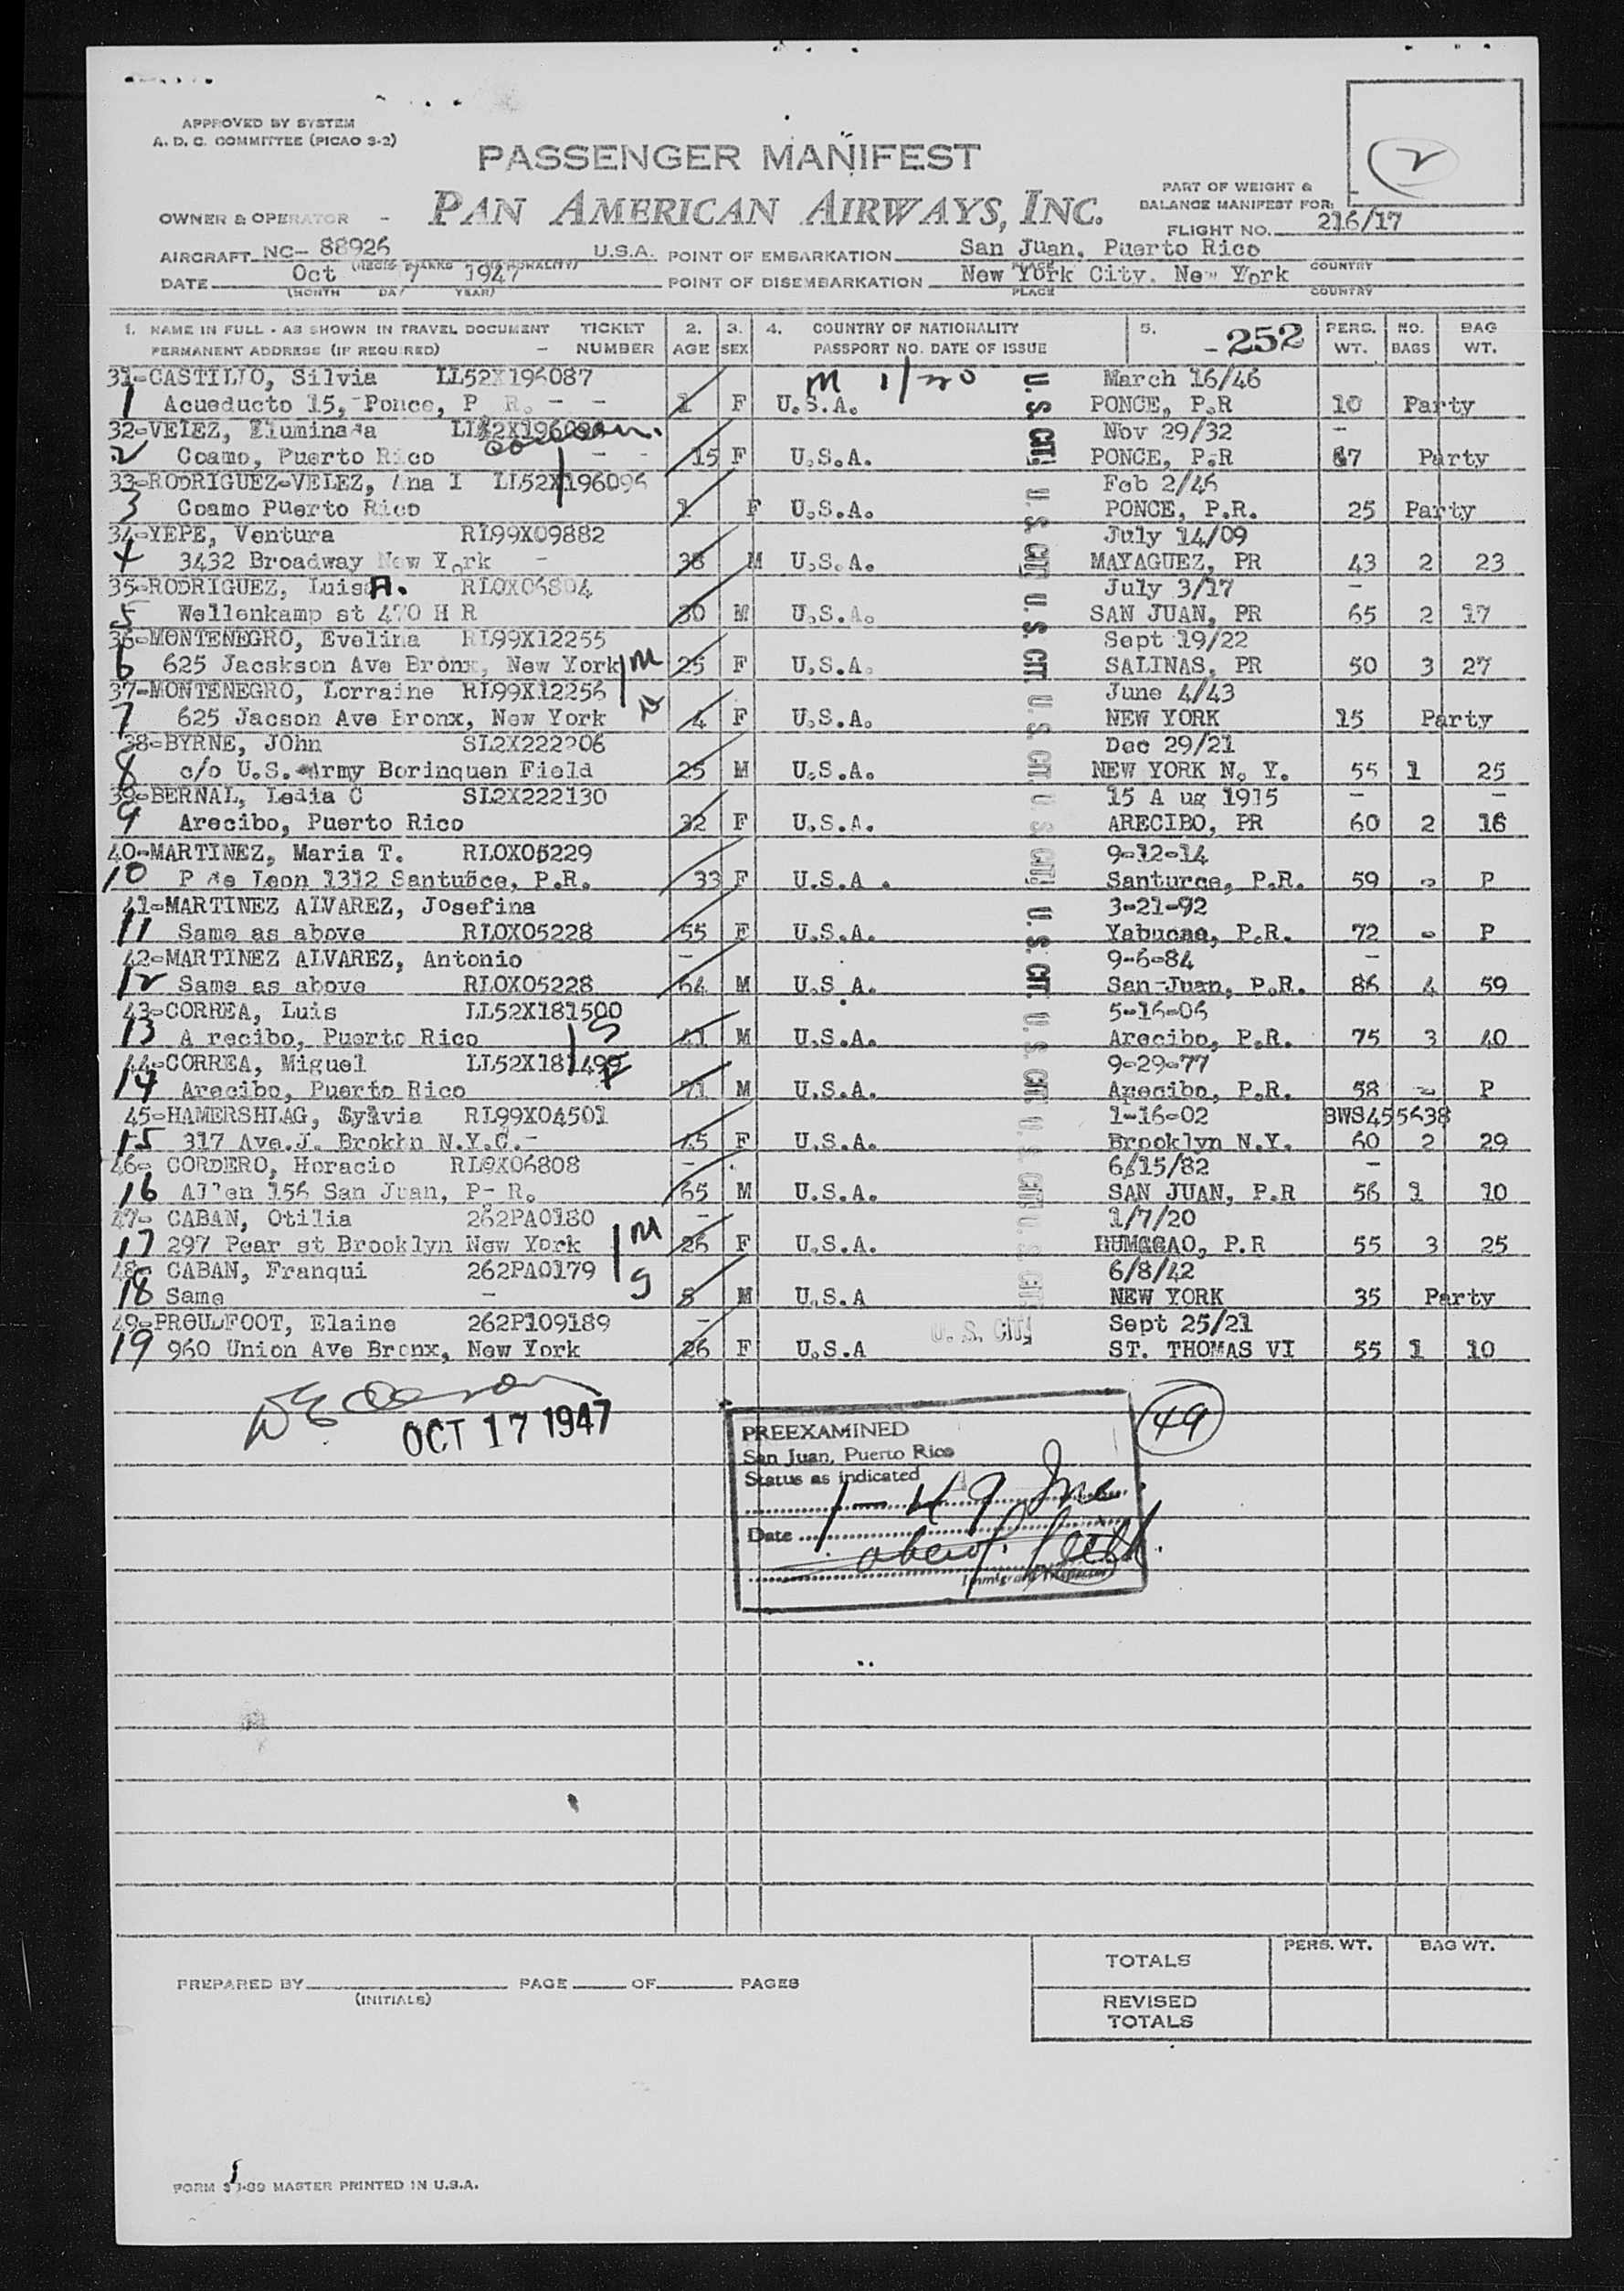 APPROVED BY SYSTEM
A. D. C. COMMITTEE (PICAO S-2)
2
PASSENGER MANIFEST
PAN AMERICAN AIRWAYS, INC.
PART OF WEIGHT &
BALANCE MANIFEST FOR:
OWNER & OPERATOR -
FLIGHT NO. 216/17
AIRCRAFT NC- 88926 U.S.A. POINT OF EMBARKATION San Juan, Puerto Rico
PLACE COUNTRY
DATE Oct 1947 POINT OF DISEMBARKATION New York City. New York
(MONTH DAY YEAR) PLACE COUNTRY
1. NAME IN FULL - AS SHOWN IN TRAVEL DOCUMENT TICKET 2. 3. 4. COUNTRY OF NATIONALITY 5. -252 PERS. NO. BAG
PERMANENT ADDRESS (IF REQUIRED) - NUMBER AGE SEX PASSPORT NO. DATE OF ISSUE WT. BAGS WT.
31-CASTILLO, Silvia LL52X196087 M 1/20 March 16/46
1 Acueducto 15, Ponce, P R. - - 1 F U.S.A. U. S. CIT. PONCE, P.R 10 Party
32-VELEZ, Iluminada Nov 29/32 -
2 Coamo, Puerto Rico - - 15 F U.S.A. PONCE, P.R 67 Party
33-RODRIGUEZ-VELEZ, Ana I LL52X196096 Feb 2/46
3 Coamo Puerto Rico 1 F U.S.A. U. S. CIT. PONCE, P.R. 25 Party
34-YEPE, Ventura RL99X09882 July 14/09
4 3432 Broadway New York - 38 M U.S.A. MAYAGUEZ, PR 43 2 23
35-RODRIGUEZ, Luis A. RLOX06804 July 3/17 -
5 Wellenkamp st 470 H R 30 M U.S.A. U. S. CIT. SAN JUAN, PR 65 2 17
36-MONTENEGRO, Evelina RL99X12255 Sept 19/22
6 625 Jacskson Ave Bronx, New York M 25 F U.S.A. SALINAS, PR 50 3 27
37-MONTENEGRO, Lorraine RL99X12256 June 4/43
7 625 Jacson Ave Bronx, New York 4 F U.S.A. U. S. CIT. NEW YORK 15 Party
38-BYRNE, JOhn SL2X222206 Dec 29/21
8 c/o U.S. Army Borinquen Field 25 M U.S.A. NEW YORK N. Y. 55 1 25
39-BERNAL, Ledia C SL2X222130 15 A ug 1915 - -
9 Arecibo, Puerto Rico 32 F U.S.A. U. S. CIT. ARECIBO, PR 60 2 16
40-MARTINEZ, Maria T. RLOX05229 9-12-14
10 P de Leon 1312 Santurce, P.R. 33 F U.S.A. Santurce, P.R. 59 - P
41-MARTINEZ ALVAREZ, Josefina 3-21-92
11 Same as above RLOX05228 55 F U.S.A. U. S. CIT. Yabucao, P.R. 72 - P
42-MARTINEZ ALVAREZ, Antonio - 9-6-84 -
12 Same as above RLOX05228 64 M U.S A. San-Juan, P.R. 86 4 59
43-CORREA, Luis LL52X181500 5-16-06
13 A recibo, Puerto Rico S 41 M U.S.A. U. S. CIT. Arecibo, P.R. 75 3 40
44-CORREA, Miguel LL52X181499 9-29-77
14 Arecibo, Puerto Rico F 71 M U.S.A. Arecibo, P.R. 58 - P
45-HAMERSHLAG, Sylvia RL99X04501 1-16-02 BWS455638
15 317 Ave.J. Brokln N.Y.C.- 45 F U.S.A. U. S. CIT. Brooklyn N.Y. 60 2 29
46- CORDERO, Horacio RL9X06808 - 6/15/82 -
16 Allen 156 San Juan, P- R. 65 M U.S.A. SAN JUAN, P.R 56 1 10
47- CABAN, Otilia 262PA0180 - 1/7/20
17 297 Pear st Brooklyn New York M 26 F U.S.A. U. S. CIT. HUMACAO, P.R 55 3 25
48- CABAN, Franqui 262PA0179 6/8/42
18 Same - S 5 M U.S.A NEW YORK 35 Party
49-PROUDFOOT, Elaine 262P109189 - Sept 25/21
19 960 Union Ave Bronx, New York 26 F U.S.A U. S. CIT. ST. THOMAS VI 55 1 10
OCT 17 1947
49
PREEXAMINED
San Juan, Puerto Rico
Status as indicated
1 - 49 Inc.
Date
Immigrant Inspector
TOTALS PERS. WT. BAG WT.
PREPARED BY PAGE OF PAGES
(INITIALS)
REVISED
TOTALS
MASTER PRINTED IN U.S.A.